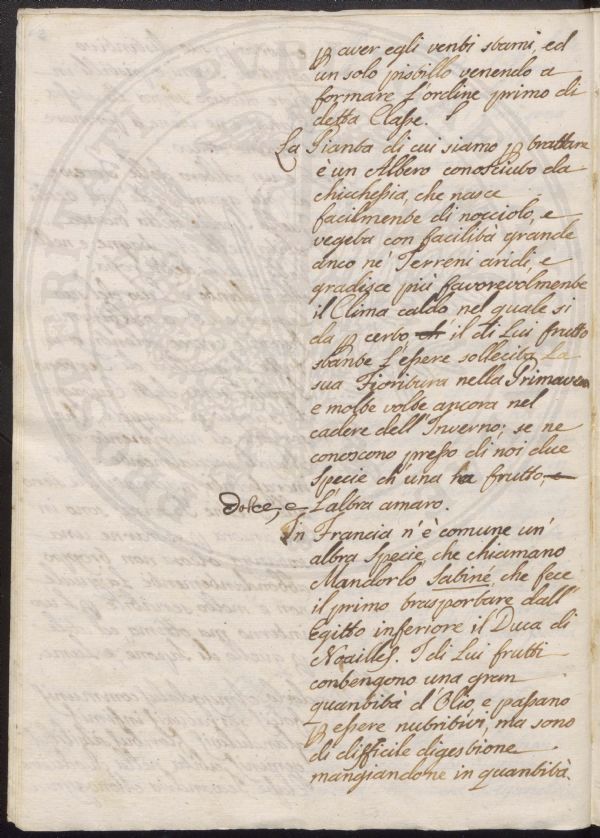 ꝑ aver egli venti stami, ed
un solo pistillo venendo a
formare l'ordine primo di
detta Classe.
La Pianta di cui siamo ꝑ trattare
è un Albero conosciuto da
chicchessia, che nasce
facilmente di nocciolo, e
vegeta con facilità grande
anco nè Terreni aridi, e
gradisce più favorevolmente
il Clima caldo nel quale si
da ꝑ certo, ch il di Lui frutto
stante l'essere sollecita La
sua Fioritura nella Primavera
e molte volte ancora nel
cadere dell'Inverno; se ne
conoscono presso di noi due
Specie ch'una ha frutto, e
dolce, e L'altra amaro.
In Francia n'è comune un'
altra Specie, che chiamano
Mandorlo Satiné, che fece
il primo trasportare dall'
Egitto inferiore il Duca di
Noailles. I di Lui frutti
contengono una gran
quantità d'Olio, e passano
ꝑ essere nutritivi, ma sono
di difficile digestione
mangiandone in quantità.